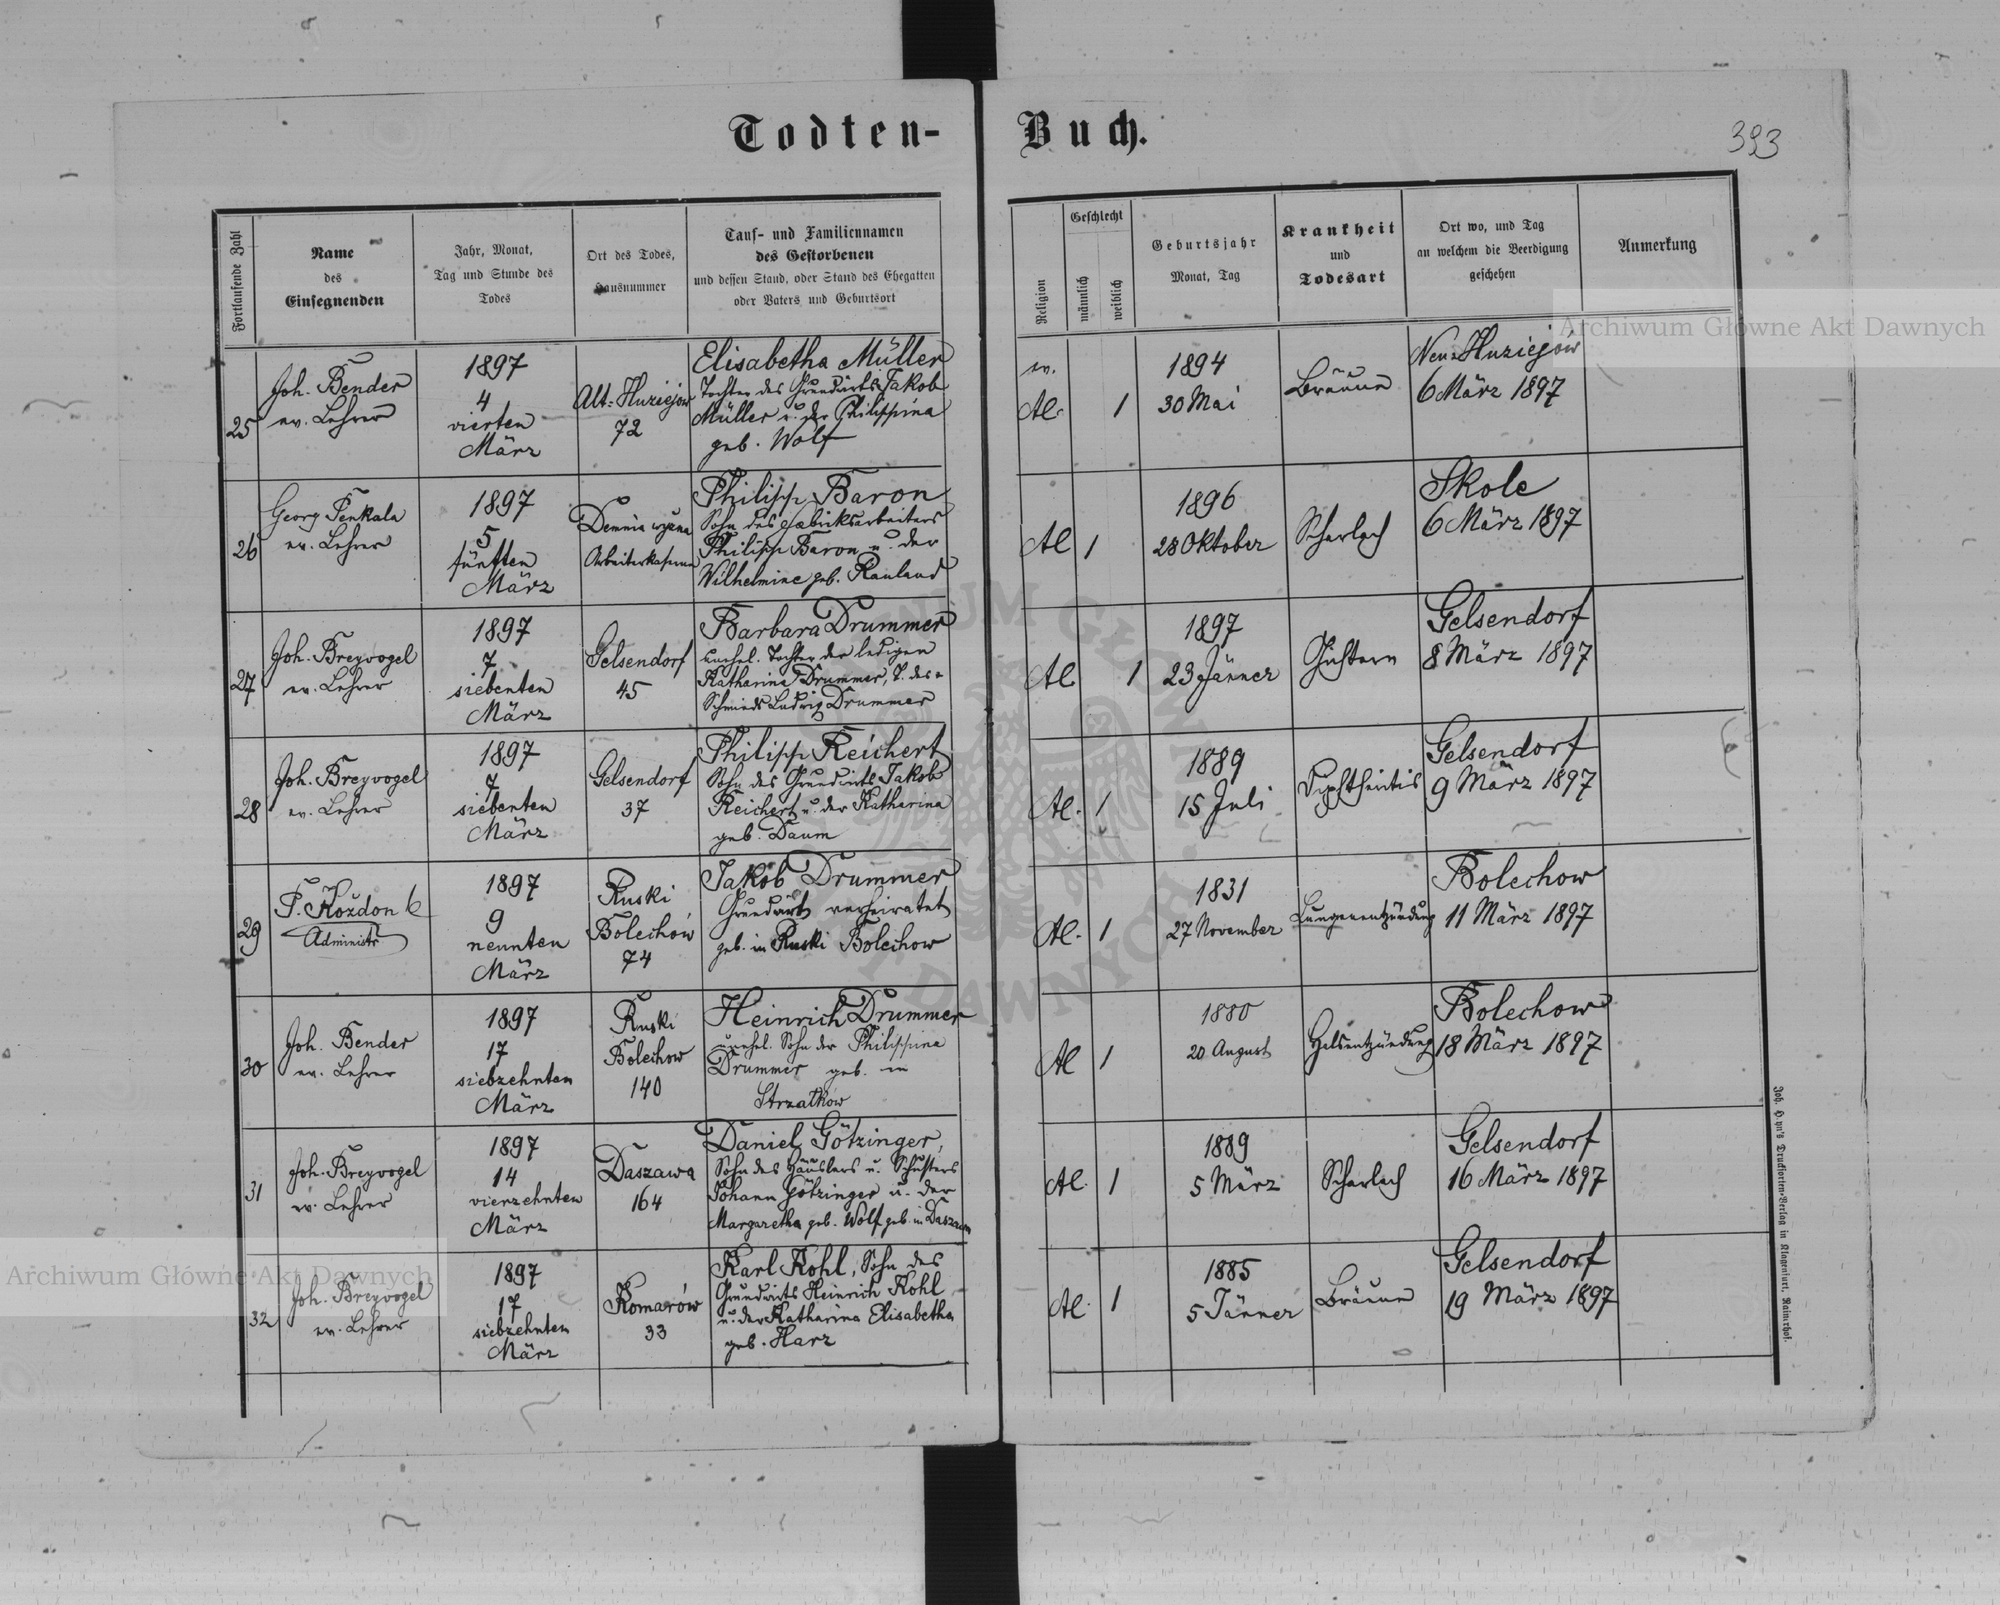 Todten- Buch.
393
Fortlaufende Zahl
Name
des
Einsegnenden
Jahr, Monat,
Tag und Stunde des
Todes
Ort des Todes,
Hausnummer
Tauf- und Familiennamen
des Gestorbenen
und dessen Stand, oder Stand des Ehegatten
oder Vaters und Geburtsort
Religion
Geschlecht
männlich
weiblich
Geburtsjahr
Monat, Tag
Krankheit
und
Todesart
Ort wo, und Tag
an welchem die Beerdigung
geschehen
Anmerkung
25
Joh. Bender
ev. Lehrer
1897
4
vierten
März
Alt-Huziejow
72
Elisabetha Müller
Tochter des Grundwirts Jakob
Müller u. der Philippina
geb. Wolf
ev.
AC.
1
1894
30 Mai
Bräune
Neu-Huziejów
6 März 1897
26
Georg Penkala
ev. Lehrer
1897
5
fünften
März
Demnia wyżna
Arbeiterkaserne
Philipp Baron
Sohn des Fabriksarbeiters
Philipp Baron u. der
Wilhelmine geb. Rauland
AC
1
1896
28 Oktober
Scharlach
Skole
6 März 1897
27
Joh. Breyvogel
ev. Lehrer
1897
7
siebenten
März
Gelsendorf
45
Barbara Drummer
unehel. Tochter der ledigen
Katharina Drummer, T. des
Schmieds Ludwig Drummer
AC
1
1897
23 Jänner
Gichtern
Gelsendorf
8 März 1897
28
Joh. Breyvogel
ev. Lehrer
1897
7
siebenten
März
Gelsendorf
37
Philipp Reichert
Sohn des Grundwirts Jakob
Reichert u. der Katharina
geb. Daum
AC.
1
1889
15 Juli
Diphtheritis
Gelsendorf
9 März 1897
29
P. Kozdon
Administr
1897
9
neunten
März
Ruski
Bolechów
74
Jakob Drummer
Grundwirt verheiratet
geb. in Ruski Bolechow
AC.
1
1831
27 November
Lungenentzündung
Bolechow
11 März 1897
30
Joh. Bender
ev. Lehrer
1897
17
siebzehnten
März
Ruski
Bolechow
140
Heinrich Drummer
unehel. Sohn der Philippine
Drummer geb. in
Strzalkow
AC
1
1880
20 August
Halsentzündung
Bolechow
18 März 1897
31
Joh. Breyvogel
ev. Lehrer
1897
14
vierzehnten
März
Daszawa
164
Daniel Götzinger,
Sohn des Häuslers u. Schusters
Johann Götzinger u. der
Margaretha geb. Wolf geb. in Daszawa
AC.
1
1889
5 März
Scharlach
Gelsendorf
16 März 1897
32
Joh. Breyvogel
ev. Lehrer
1897
17
siebzehnten
März
Komarów
33
Karl Kohl, Sohn des
Grundwirts Heinrich Kohl
u. der Katharina Elisabetha
geb. Harz
AC.
1
1885
5 Jänner
Bräune
Gelsendorf
19 März 1897
Joh. Hyn's Drucksorten-Verlag in Klagenfurt, Rainerhof.
Archiwum Główne Akt Dawnych
Archiwum Główne Akt Dawnych